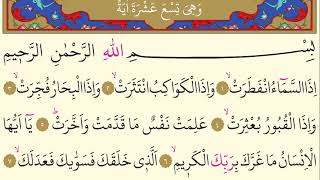 وَهِيَ تِسْعَ عَشْرَةَ اٰيَةً
بِسْمِ اللّٰهِ الرَّحْمٰنِ الرَّحٖيمِ
اِذَا السَّمَٓاءُ انْفَطَرَتْۙ ١ وَاِذَا الْكَوَاكِبُ انْتَثَرَتْۙ ٢ وَاِذَا الْبِحَارُ فُجِّرَتْۙ ٣
وَاِذَا الْقُبُورُ بُعْثِرَتْۙ ٤ عَلِمَتْ نَفْسٌ مَا قَدَّمَتْ وَاَخَّرَتْۜ ٥ يَٓا اَيُّهَا
الْاِنْسَانُ مَا غَرَّكَ بِرَبِّكَ الْكَرٖيمِۙ ٦ اَلَّذٖي خَلَقَكَ فَسَوّٰيكَ فَعَدَلَكَۙ ٧